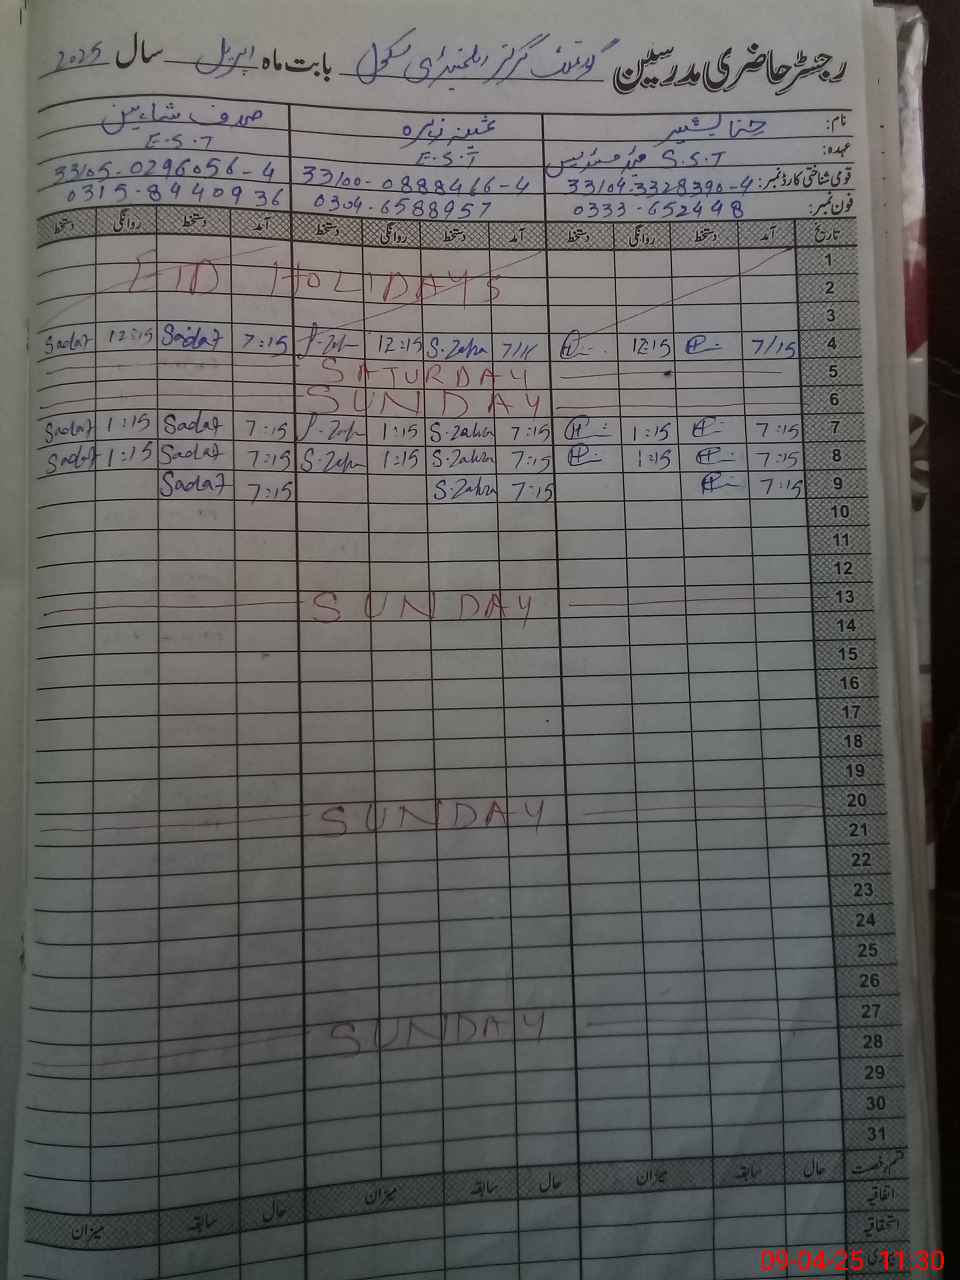 رجسٹر حاضری مدرسین گورنمنٹ گرلز ایلیمنٹری سکول بابت ماہ اپریل سال 2025
نام: حنا بشیر ثمینہ زہرہ صدف شاہین
عہدہ: S.S.T ہیڈ مسٹریس E.S.T E.S.T
قومی شناختی کارڈ نمبر: 33104-3328390-4 33100-0888466-4 33105-0296056-4
فون نمبر: 0333-652448 0304-6588957 0315-8940936
تاریخ آمد دستخط روانگی دستخط آمد دستخط روانگی دستخط آمد دستخط روانگی دستخط
1
2 EID HOLIDAYS
3
4 7/15 12:15 S.Zahra 12:15 7:15 Sadaf 12:15 Sadaf
5 SATURDAY
6 SUNDAY
7 7:15 1:15 7:15 S.Zahra 1:15 7:15 Sadaf 1:15 Sadaf
8 7:15 1:15 7:15 S.Zahra 1:15 S.Zahra 7:15 Sadaf 1:15 Sadaf
9 7:15 7:15 S.Zahra 7:15 Sadaf
10
11
12
13 SUNDAY
14
15
16
17
18
19
20 SUNDAY
21
22
23
24
25
26
27 SUNDAY
28
29
30
31
قسم رخصت حال سابقہ میزان حال سابقہ میزان حال سابقہ میزان
اتفاقیہ
استحقاقیہ
09-04-25 11:30